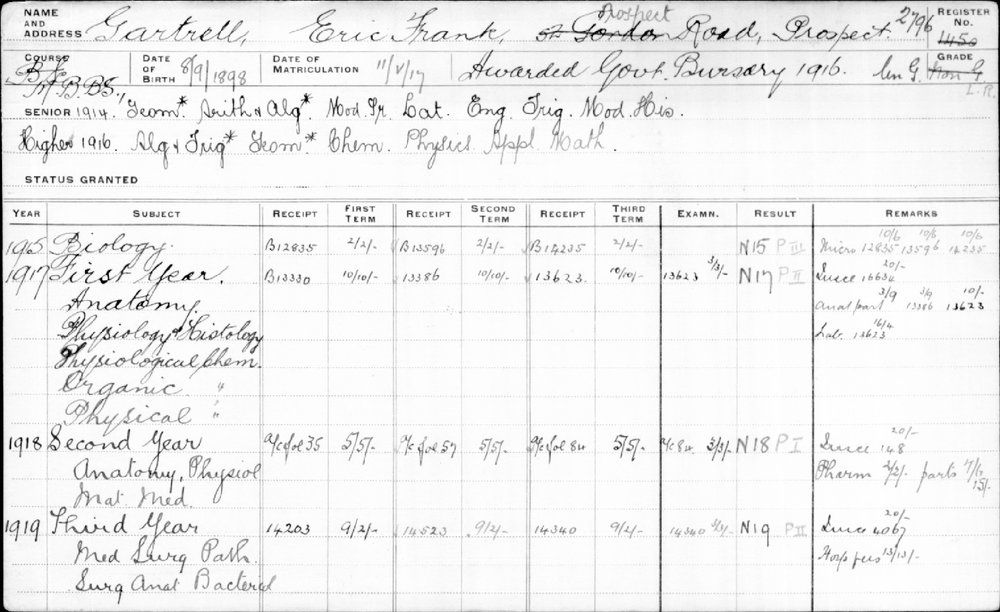 Prospect
NAME AND ADDRESS Gartrell, Eric Frank, Gordon Road, Prospect. 2796 REGISTER No. 1450
COURSE B.Sc. M.B.B.S., DATE OF BIRTH 8/9/1898 DATE OF MATRICULATION 11/V/17 Awarded Govt. Bursary 1916. GRADE L.R.
SENIOR 1914. Geom* Arith & Alg* Mod. Gr. Lat. Eng. Trig. Mod. His.
Higher 1916. Alg & Trig* Geom* Chem. Physics. Appl. Math.
STATUS GRANTED
YEAR SUBJECT RECEIPT FIRST TERM RECEIPT SECOND TERM RECEIPT THIRD TERM EXAMN. RESULT REMARKS
10/6 10/6 10/6
1915 Biology. B12835 2/2/- B13596 2/2/- B14235 2/2/- N15 P III Micro 12835 13596 14235
20/-
1917 First Year. B13330 10/10/- 13386 10/10/- 13623 10/10/- 13623 3/3/- N17 P II 16634
3/9 3/9 10/-
Anatomy. Anat part 13386 13623
16/4
Physiology & Histology Lab. 13623
Physiological Chem.
Organic "
Physical "
20/-
1918 Second Year a/c fol 35 5/5/- a/c fol 57 5/5/- a/c fol 84 5/5/- a/c 84 3/3/- N18 P I 148
Anatomy, Physiol Pharm 2/2/- parts 15/-
Mat. Med.
20/-
1919 Third Year 14203 9/2/- 14523 9/2/- 14340 9/2/- 14340 3/3/- N19 P II 4067
Med Surg Path. Hosp fees 13/13/-
Surg Anat Bacteriol